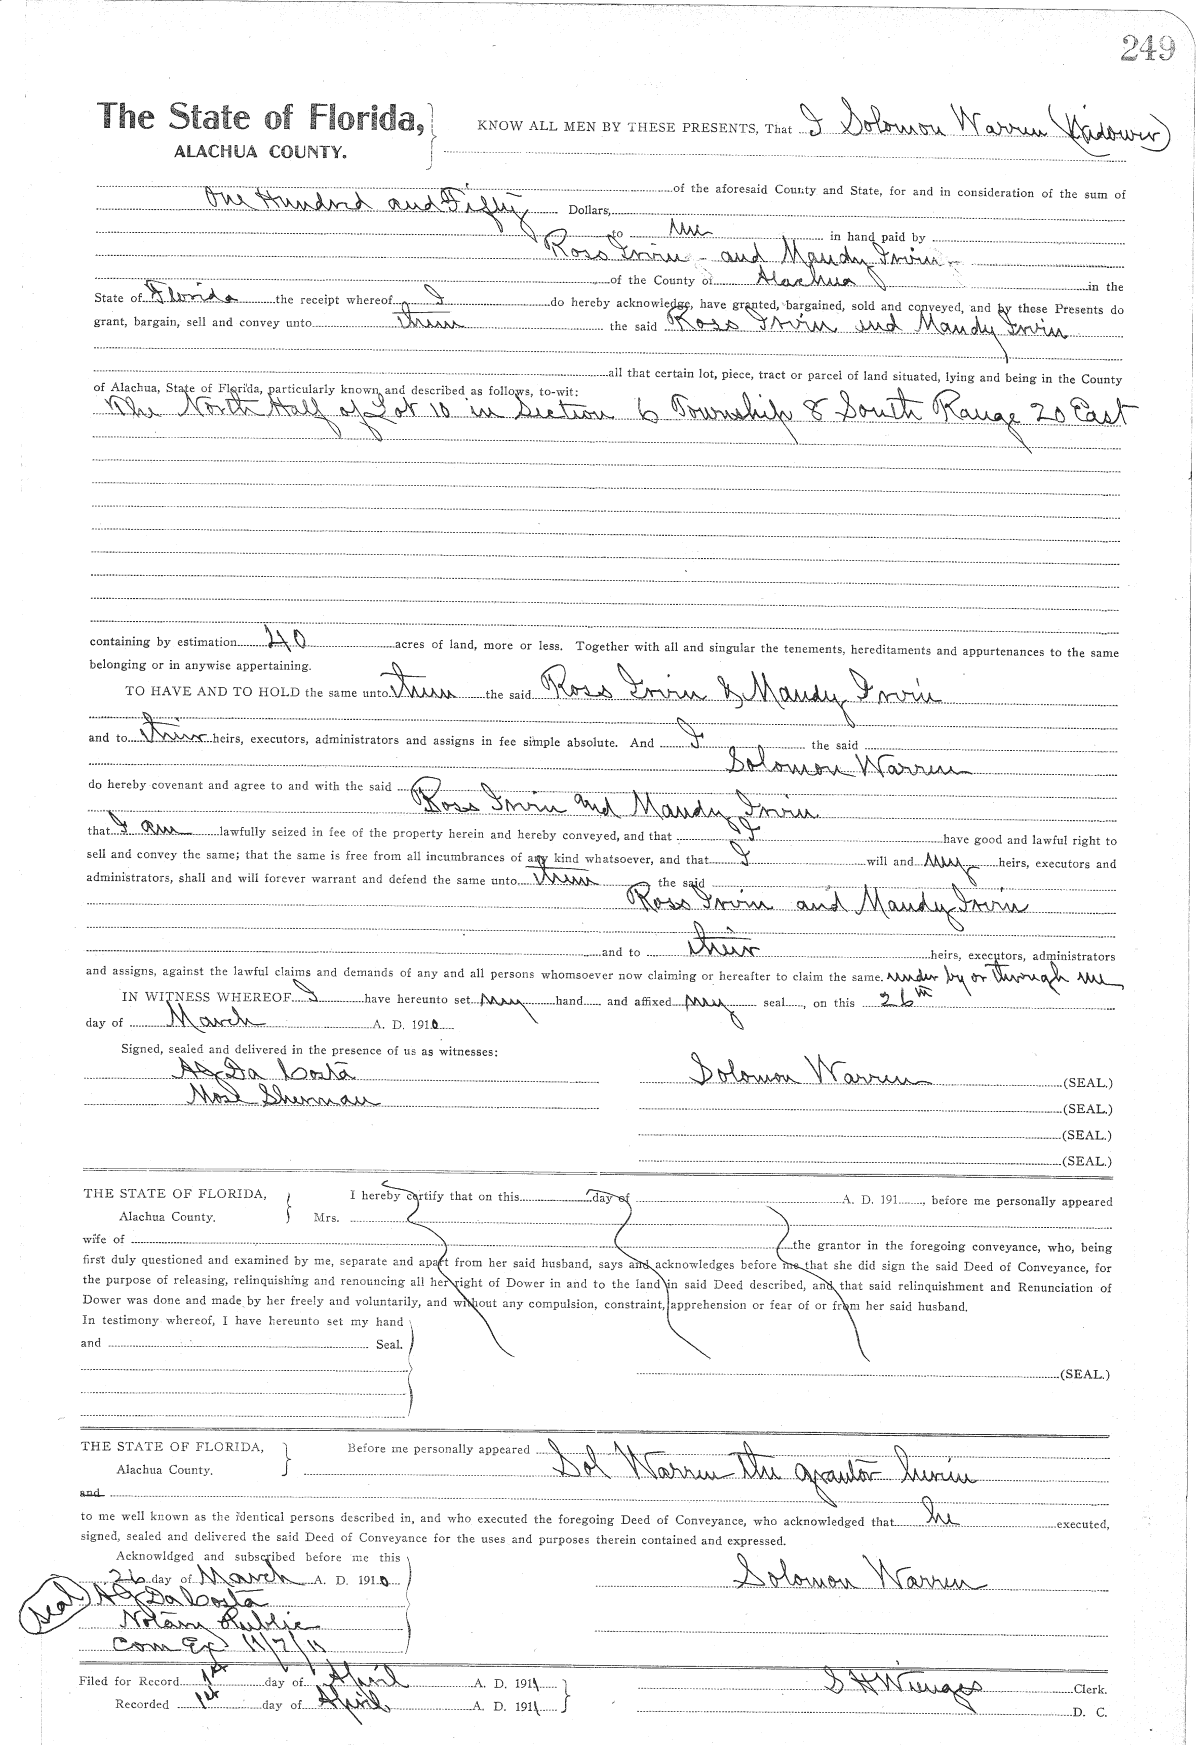 249
The State of Florida,
ALACHUA COUNTY.
KNOW ALL MEN BY THESE PRESENTS, That I Solomon Warren (Widower)
of the aforesaid County and State, for and in consideration of the sum of
One Hundred and Fifty Dollars,
to me in hand paid by
Ross Irvin - and Mandy Irvin -
of the County of Alachua in the
State of Florida the receipt whereof I do hereby acknowledge, have granted, bargained, sold and conveyed, and by these Presents do
grant, bargain, sell and convey unto them the said Ross Irvin and Mandy Irvin
all that certain lot, piece, tract or parcel of land situated, lying and being in the County
of Alachua, State of Florida, particularly known and described as follows, to-wit:
The North Half of Lot 10 in Section 6 Township 8 South Range 20 East
containing by estimation 40 acres of land, more or less. Together with all and singular the tenements, hereditaments and appurtenances to the same
belonging or in anywise appertaining.
TO HAVE AND TO HOLD the same unto them the said Ross Irvin & Mandy Irvin
and to their heirs, executors, administrators and assigns in fee simple absolute. And I the said
Solomon Warren
do hereby covenant and agree to and with the said
Ross Irvin and Mandy Irvin
that I am lawfully seized in fee of the property herein and hereby conveyed, and that I have good and lawful right to
sell and convey the same; that the same is free from all incumbrances of any kind whatsoever, and that I will and my heirs, executors and
administrators, shall and will forever warrant and defend the same unto them the said
Ross Irvin and Mandy Irvin
and to their heirs, executors, administrators
and assigns, against the lawful claims and demands of any and all persons whomsoever now claiming or hereafter to claim the same. under by or through me
IN WITNESS WHEREOF I have hereunto set my hand and affixed my seal, on this 26th
day of March A. D. 1910
Signed, sealed and delivered in the presence of us as witnesses:
AG Da Costa Solomon Warren (SEAL.)
Mose Sherman (SEAL.)
(SEAL.)
(SEAL.)
THE STATE OF FLORIDA, I hereby certify that on this day of A. D. 191 , before me personally appeared
Alachua County. Mrs.
wife of the grantor in the foregoing conveyance, who, being
first duly questioned and examined by me, separate and apart from her said husband, says and acknowledges before me that she did sign the said Deed of Conveyance, for
the purpose of releasing, relinquishing and renouncing all her right of Dower in and to the land in said Deed described, and that said relinquishment and Renunciation of
Dower was done and made by her freely and voluntarily, and without any compulsion, constraint, apprehension or fear of or from her said husband.
In testimony whereof, I have hereunto set my hand
and Seal.
(SEAL.)
THE STATE OF FLORIDA, Before me personally appeared
Alachua County. Sol Warren the grantor herein
and
to me well known as the identical persons described in, and who executed the foregoing Deed of Conveyance, who acknowledged that he executed,
signed, sealed and delivered the said Deed of Conveyance for the uses and purposes therein contained and expressed.
Acknowldged and subscribed before me this
26 day of March A. D. 1910 Solomon Warren
(seal) AG Da Costa
Notary Public
Com Ex 11/7/11
Filed for Record 1st day of April A. D. 1911 S H Wienges Clerk.
Recorded 1st day of April A. D. 1911 D. C.